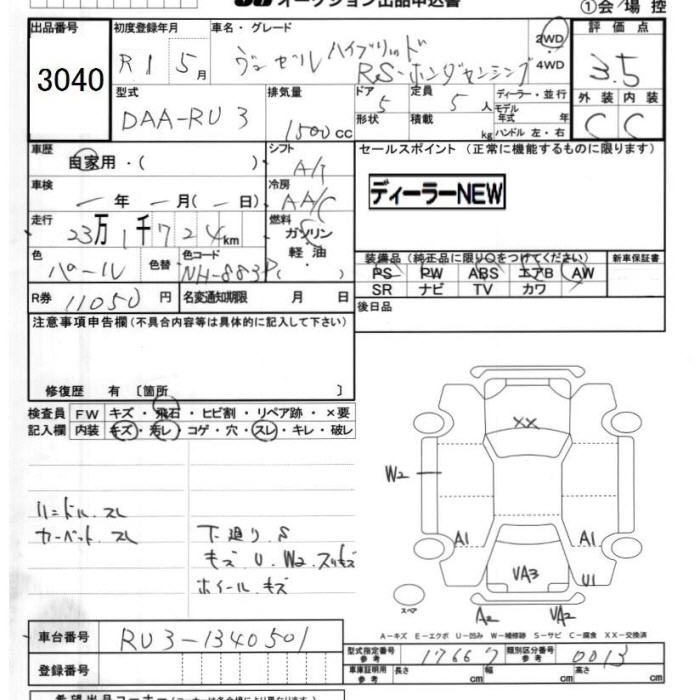 オークション出品申込書
①会場控
出品番号
3040
初度登録年月
R1 5月
車名・グレード
ヴェゼル ハイブリッド
RS・ホンダセンシング
2WD
・
4WD
評価点
3.5
型式
DAA-RU3
排気量
1500cc
ドア
5
形状
定員
5人
積載
kg
ディーラー・並行
モデル
年式 年
ハンドル 左・右
外装 内装
C C
車歴
自家用・( )
シフト
A/T
セールスポイント (正常に機能するものに限ります)
車検
年 月(ー日)
冷房
AA/C
ディーラーNEW
走行
23万1千724km
燃料
ガソリン
軽・油
( )
色
パール
色替
色コード
NH-883P
装備品 (純正品に限り○をつけてください)
新車保証書
PS PW ABS エアB AW
SR ナビ TV カワ
R券 11050円
名変通知期限 月 日
後日品
注意事項申告欄(不具合内容等は具体的に記入して下さい)
修復歴 有 〔箇所 〕
検査員
記入欄
FW キズ・飛石・ヒビ割・リペア跡・×要
内装 キズ・汚レ・コゲ・穴・スレ・キレ・破レ
XX
W2
ハンドル.スレ
カーペット.スレ
下廻り.S
キズ.U.W2.スリキズ
ホイール.キズ
A1 A1
VA3 U1
スペア
A2 VA2
A-キズ E-エクボ U-凹み W-補修跡 S-サビ C-腐食 XX-交換済
車台番号 RU3-1340501
型式指定番号
参考
17667
類別区分番号
参考
0013
登録番号
車庫証明用
参考
長さ cm 幅 cm 高さ cm
希望出品コーナー